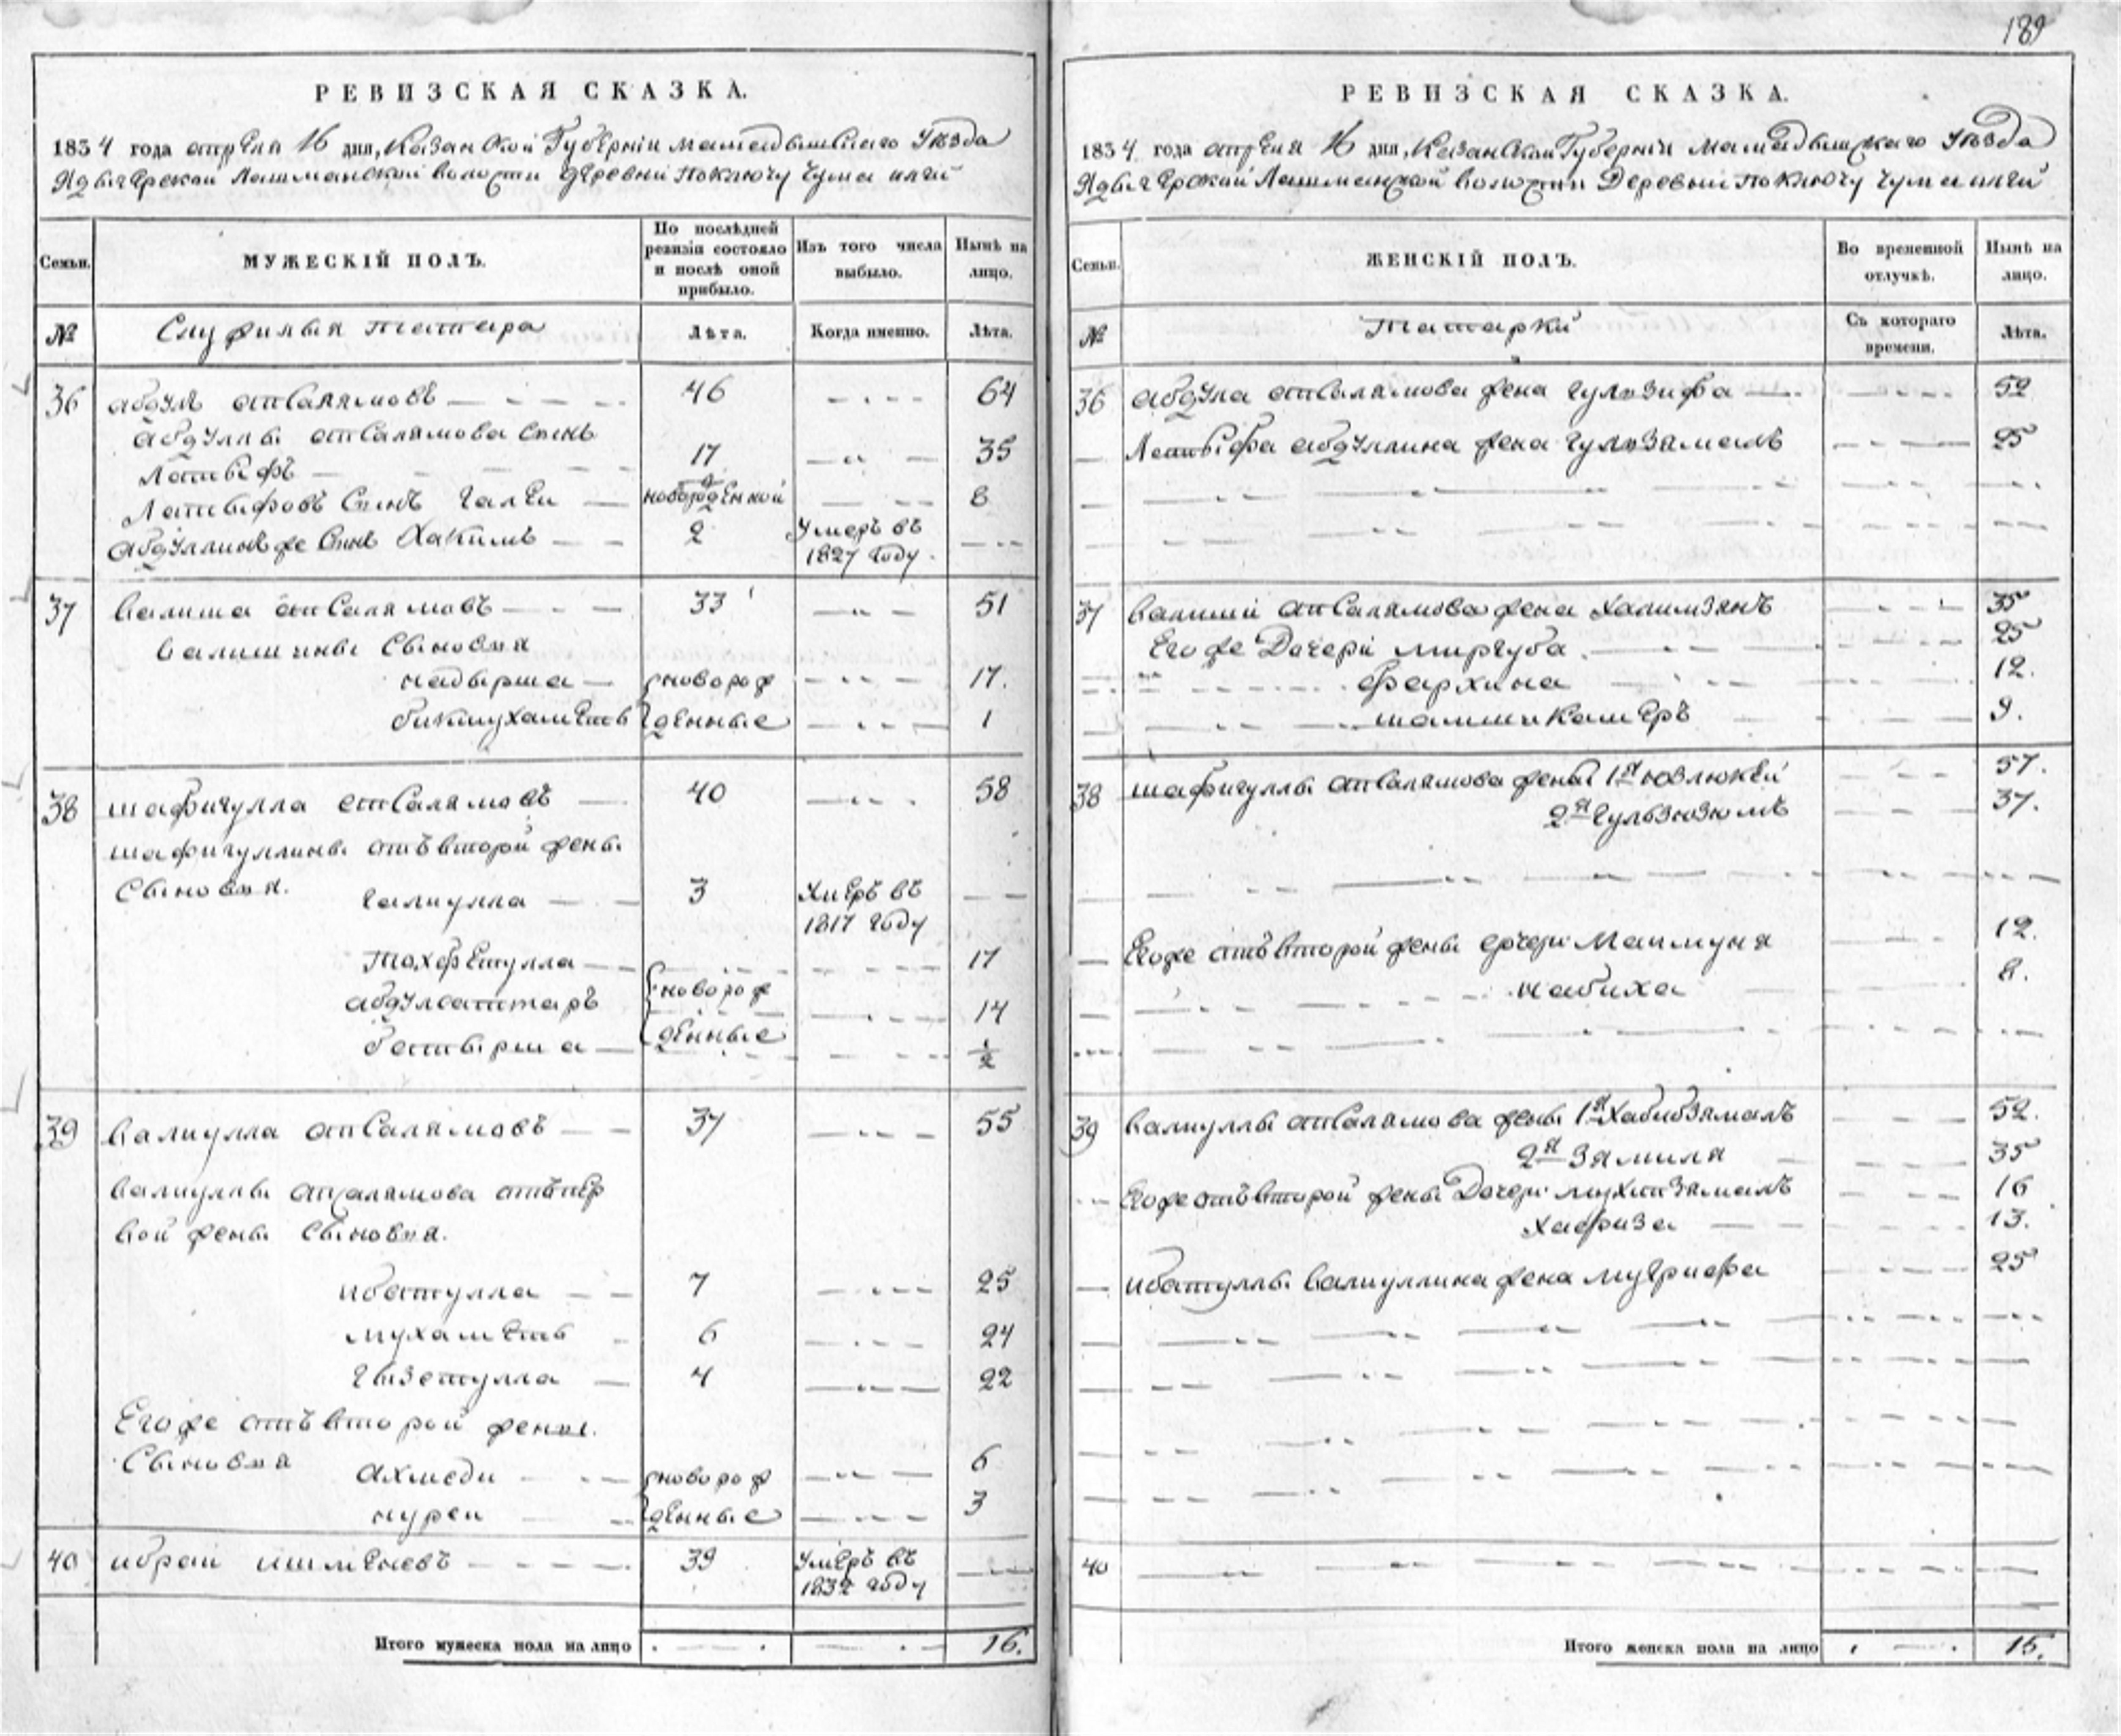 189
РЕВИЗСКАЯ СКАЗКА.
1834 года апреля 16 дня, Казанской Губернiи Мамадышскаго Уѣзда
Лашманской волости деревни по ключу Чума
Семьи.
МУЖЕСКIЙ ПОЛЪ.
По послѣдней ревизiи состояло и послѣ оной прибыло.
Изъ того числа выбыло.
Нынѣ на лицо.
№
Служилыя татара
Лѣта.
Когда именно.
Лѣта.
36 абдулъ апсалямовъ 46 64
абдуллы апсалямова сынъ
латыфъ 17 35
Латыфовъ сынъ галѣи новорожденной 8
абдуллинъ же сынъ Хакимъ 2 Умеръ въ 1827 году.
37 валиша апсалямовъ 33 51
валишины сыновья
надырша новорож 17.
бикмухаметъ денные 1
38 шафигулла апсалямовъ 40 58
шафигуллины отъ второй жены
сыновья.
галиулла 3 Умеръ въ 1817 году
тохфетулла 17
новорож
абдулсаттаръ 14
денные
батырша 1/2
39 валиулла апсалямовъ 37 55
валиуллы апсалямова отъ пер
вой жены сыновья.
ибатулла 7 25
мухаметъ 6 24
гызетулла 4 22
Его же отъ второй жены.
сыновья
ахмеди новорож 6
нуреи денные 3
40 ибраи ишменевъ 39 Умеръ въ 1832 году
Итого мужеска пола на лицо 16.
РЕВИЗСКАЯ СКАЗКА.
1834 года апреля 16 дня, Казанской Губернiи Мамадышскаго Уѣзда
Лашманской волости Деревни по ключу Чума
Семьи.
ЖЕНСКIЙ ПОЛЪ.
Во временной отлучкѣ.
Нынѣ на лицо.
№
Татарки
Съ котораго времени.
Лѣта.
36 абдула апсалямова жена гульзифа 52
Латыфа абдуллина жена гульзамалъ 25
37 валиши апсалямова жена Халимзянъ 35
Его же Дочери миргуба 25
фархина 12.
шамшикамеръ 9.
38 шафигуллы апсалямова жены 1я юзлюкеи 57.
2я гульзюзюмъ 37.
Его же отъ второй жены дочери Маимуня 12.
набиха 8.
39 валиуллы апсалямова жены 1я Хабибзямалъ 52.
2я Зямиля 35
Его же отъ второй жены Дочери мухипзямалъ 16
хафиза 13.
ибатуллы валиуллина жена 25
40
Итого женска пола на лицо 15.